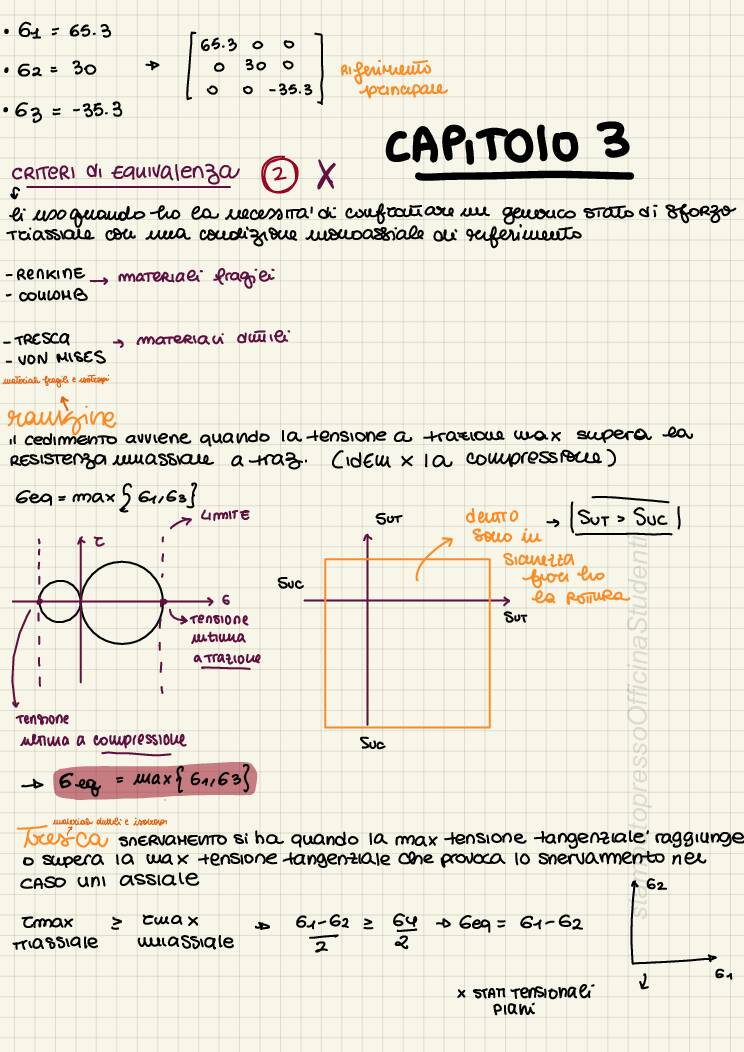 • σ1 = 65.3
• σ2 = 30 → [65.3 0 0
0 30 0
0 0 -35.3] Riferimento principale
• σ3 = -35.3
CAPITOLO 3
CRITERI di EQUIVALENZA ② X
li uso quando ho la necessità di confrontare un generico stato di sforzo
triassiale con una condizione monoassiale di riferimento
- RENKINE → materiali fragili
- COULOMB
- TRESCA → materiali duttili
- VON MISES
materiali fragili e isotropi
rankine
il cedimento avviene quando la tensione a trazione max supera la
RESISTENZA uniassiale a traz. (idem x la compressione)
σeq = max{σ1,σ3}
LIMITE
τ
σ
tensione
ultima
a trazione
tensione
ultima a compressione
SUT
SUC
SUT
SUC
dentro
sono in
sicurezza
fuori ho
la rottura
→ |SUT > SUC|
→ σeq = max{σ1,σ3}
materiali duttili e isotropi
Tresca SNERVAMENTO si ha quando la max tensione tangenziale raggiunge
o supera la max tensione tangenziale che provoca lo snervamento nel
CASO uni assiale
τmax triassiale ≥ τmax uniassiale → σ1-σ2/2 ≥ σy/2 → σeq = σ1-σ2
σ2
σ1
x STATI tensionali
piani
OfficinaStudenti